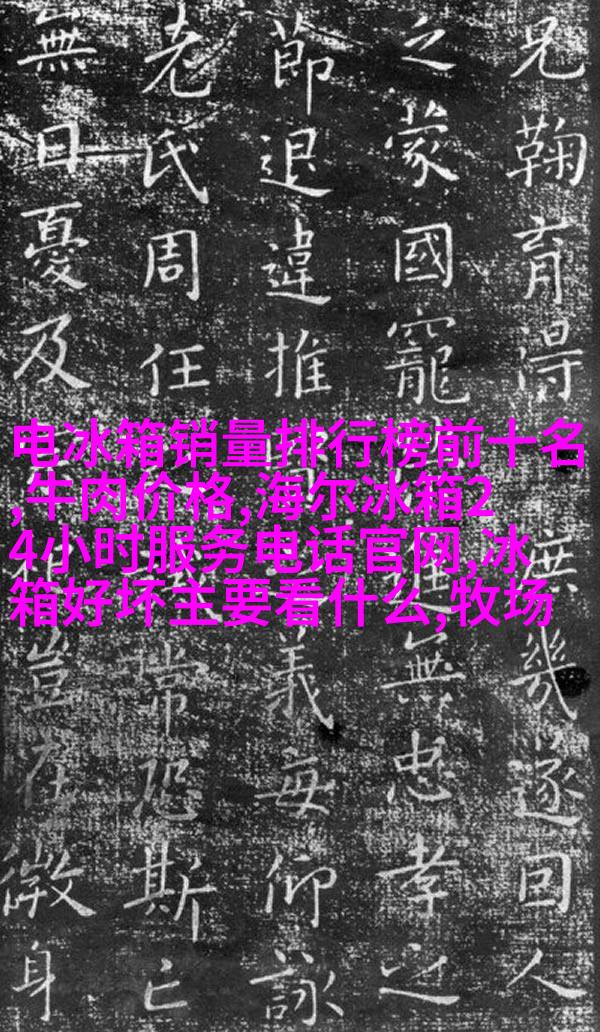 电冰箱销量排行榜前十名
,牛肉价格,海尔冰箱2
4小时服务电话官网,冰
箱好坏主要看什么,牧场
兄鞠育得庶幾遂因人
乏蒙國寵進無忠孝之
節退違推義每仰詠
老氏周任常恐斯亡
無日憂及豈在微身